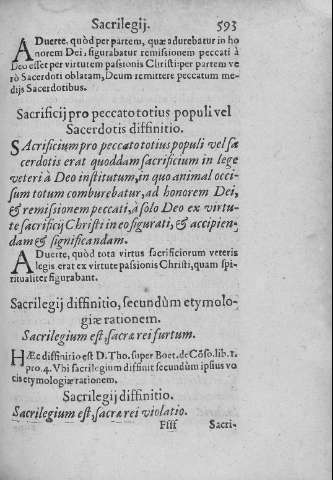 Sacrilegij. 593
ADuerte, quòd per partem, quæ adurebatur in ho
norem Dei, figurabatur remissionem peccati à
Deo esset per virtutem passionis Christi: per partem ve
rò Sacerdoti oblatam, Deum remittere peccatum me-
dijs Sacerdotibus.
Sacrificij pro peccato totius populi vel
Sacerdotis diffinitio.
SAcrificium pro peccato totius populi vel sa
cerdotis erat quoddam sacrificium in lege
veteri à Deo institutum, in quo animal occi-
sum totum comburebatur, ad honorem Dei,
& remissionem peccati, à solo Deo ex virtu-
te sacrificij Christi in eo figurati, & accipien-
dam & significandam.
ADuerte, quòd tota virtus sacrificiorum veteris
legis erat ex virtute passionis Christi, quam spi-
ritualiter figurabant.
Sacrilegij diffinitio, secundùm etymolo-
giæ rationem.
Sacrilegium est, sacræ rei furtum.
HÆc diffinitio est D. Tho. super Boet. de Cõso. lib. 1.
pro. 4. Vbi sacrilegium diffinit secundùm ipsius vo
cis etymologiæ rationem.
Sacrilegij diffinitio.
Sacrilegium est, sacræ rei violatio.
Ffff Sacri-